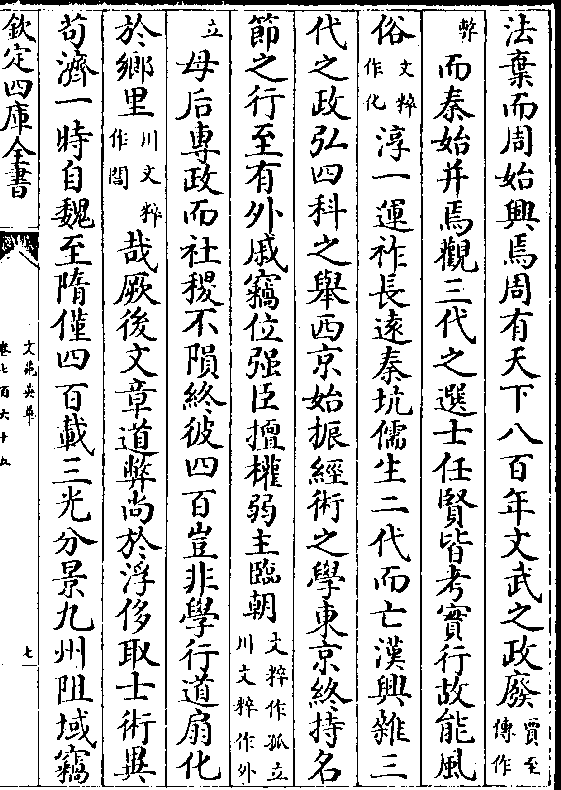 法棄而周始興焉周有天下八百年文武之政廢賈至傳作
弊而秦始并焉觀三代之選士任賢皆考實行故能風
俗文粹作化淳一運祚長遠秦坑儒生二代而亡漢興雜三
代之政弘四科之舉西京始振經術之學東京終持名
節之行至有外戚竊位强臣擅權弱主臨朝文粹作孤立川文粹作外
立母后專政而社稷不隕終彼四百豈非學行道扇化
於鄉里川文粹作閭哉厥後文章道弊尚於浮侈取士術異
苟濟一時自魏至隋僅四百載三光分景九州阻域竊
欽定四庫全書
文苑英華
卷七百六十五
七